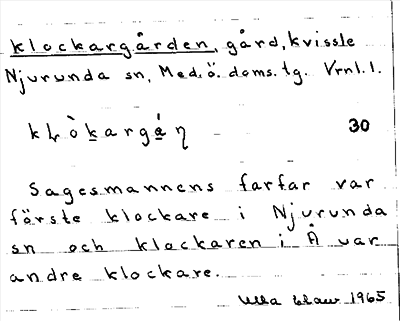 Klockargården, gård, Kvissle
Njurunda sn, Med. ö. doms. tg. Vrnl. 1.
kḷò̱kargá̱ṇ 30
Sagesmannens farfar var
förste klockare i Njurunda
sn och klockaren i Å var
andre klockare.
Ulla 1965